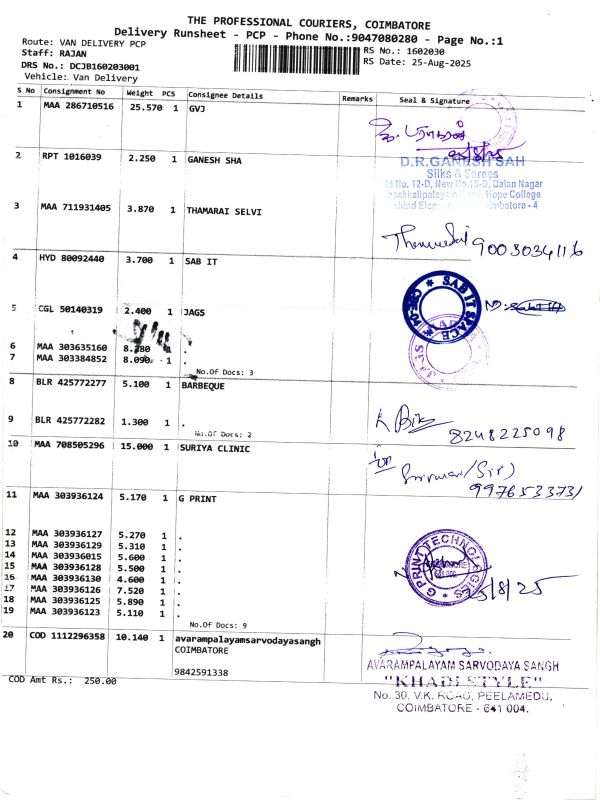 THE PROFESSIONAL COURIERS, COIMBATORE
Delivery Runsheet - PCP - Phone No.:9047080280 - Page No.:1
Route: VAN DELIVERY PCP
Staff: RAJAN
RS No.: 1602030
DRS No.: DCJB160203001
RS Date: 25-Aug-2025
Vehicle: Van Delivery
S No Consignment No Weight PCS Consignee Details Remarks Seal & Signature
1 MAA 286710516 25.570 1 GVJ
2 RPT 1016039 2.250 1 GANESH SHA
D.R.GANESH SAH
Silks & Sarees
No. 12-D, New No.15-D, Balan Nagar
Hope College
Coimbatore - 4
3 MAA 711931405 3.870 1 THAMARAI SELVI
9003034116
4 HYD 80092440 3.700 1 SAB IT
SAB IT SPACE
5 CGL 50140319 2.400 1 JAGS
JAGS
6 MAA 303635160 8.780 1 .
7 MAA 303384852 8.090 1 .
No.Of Docs: 3
8 BLR 425772277 5.100 1 BARBEQUE
9 BLR 425772282 1.300 1 .
8248225098
No.Of Docs: 2
10 MAA 708505296 15.000 1 SURIYA CLINIC
9976533731
11 MAA 303936124 5.170 1 G PRINT
12 MAA 303936127 5.270 1 .
13 MAA 303936129 5.310 1 .
14 MAA 303936015 5.600 1 .
15 MAA 303936128 5.500 1 .
16 MAA 303936130 4.600 1 .
17 MAA 303936126 7.520 1 .
18 MAA 303936125 5.890 1 .
19 MAA 303936123 5.110 1 .
G PRINT TECHNOLOGIES
25/8/25
No.Of Docs: 9
20 COD 1112296358 10.140 1 avarampalayamsarvodayasangh
COIMBATORE
9842591338
COD Amt Rs.: 250.00
AVARAMPALAYAM SARVODAYA SANGH
"KHADI STYLE"
No. 30, V.K. ROAD, PEELAMEDU,
COIMBATORE - 641 004.